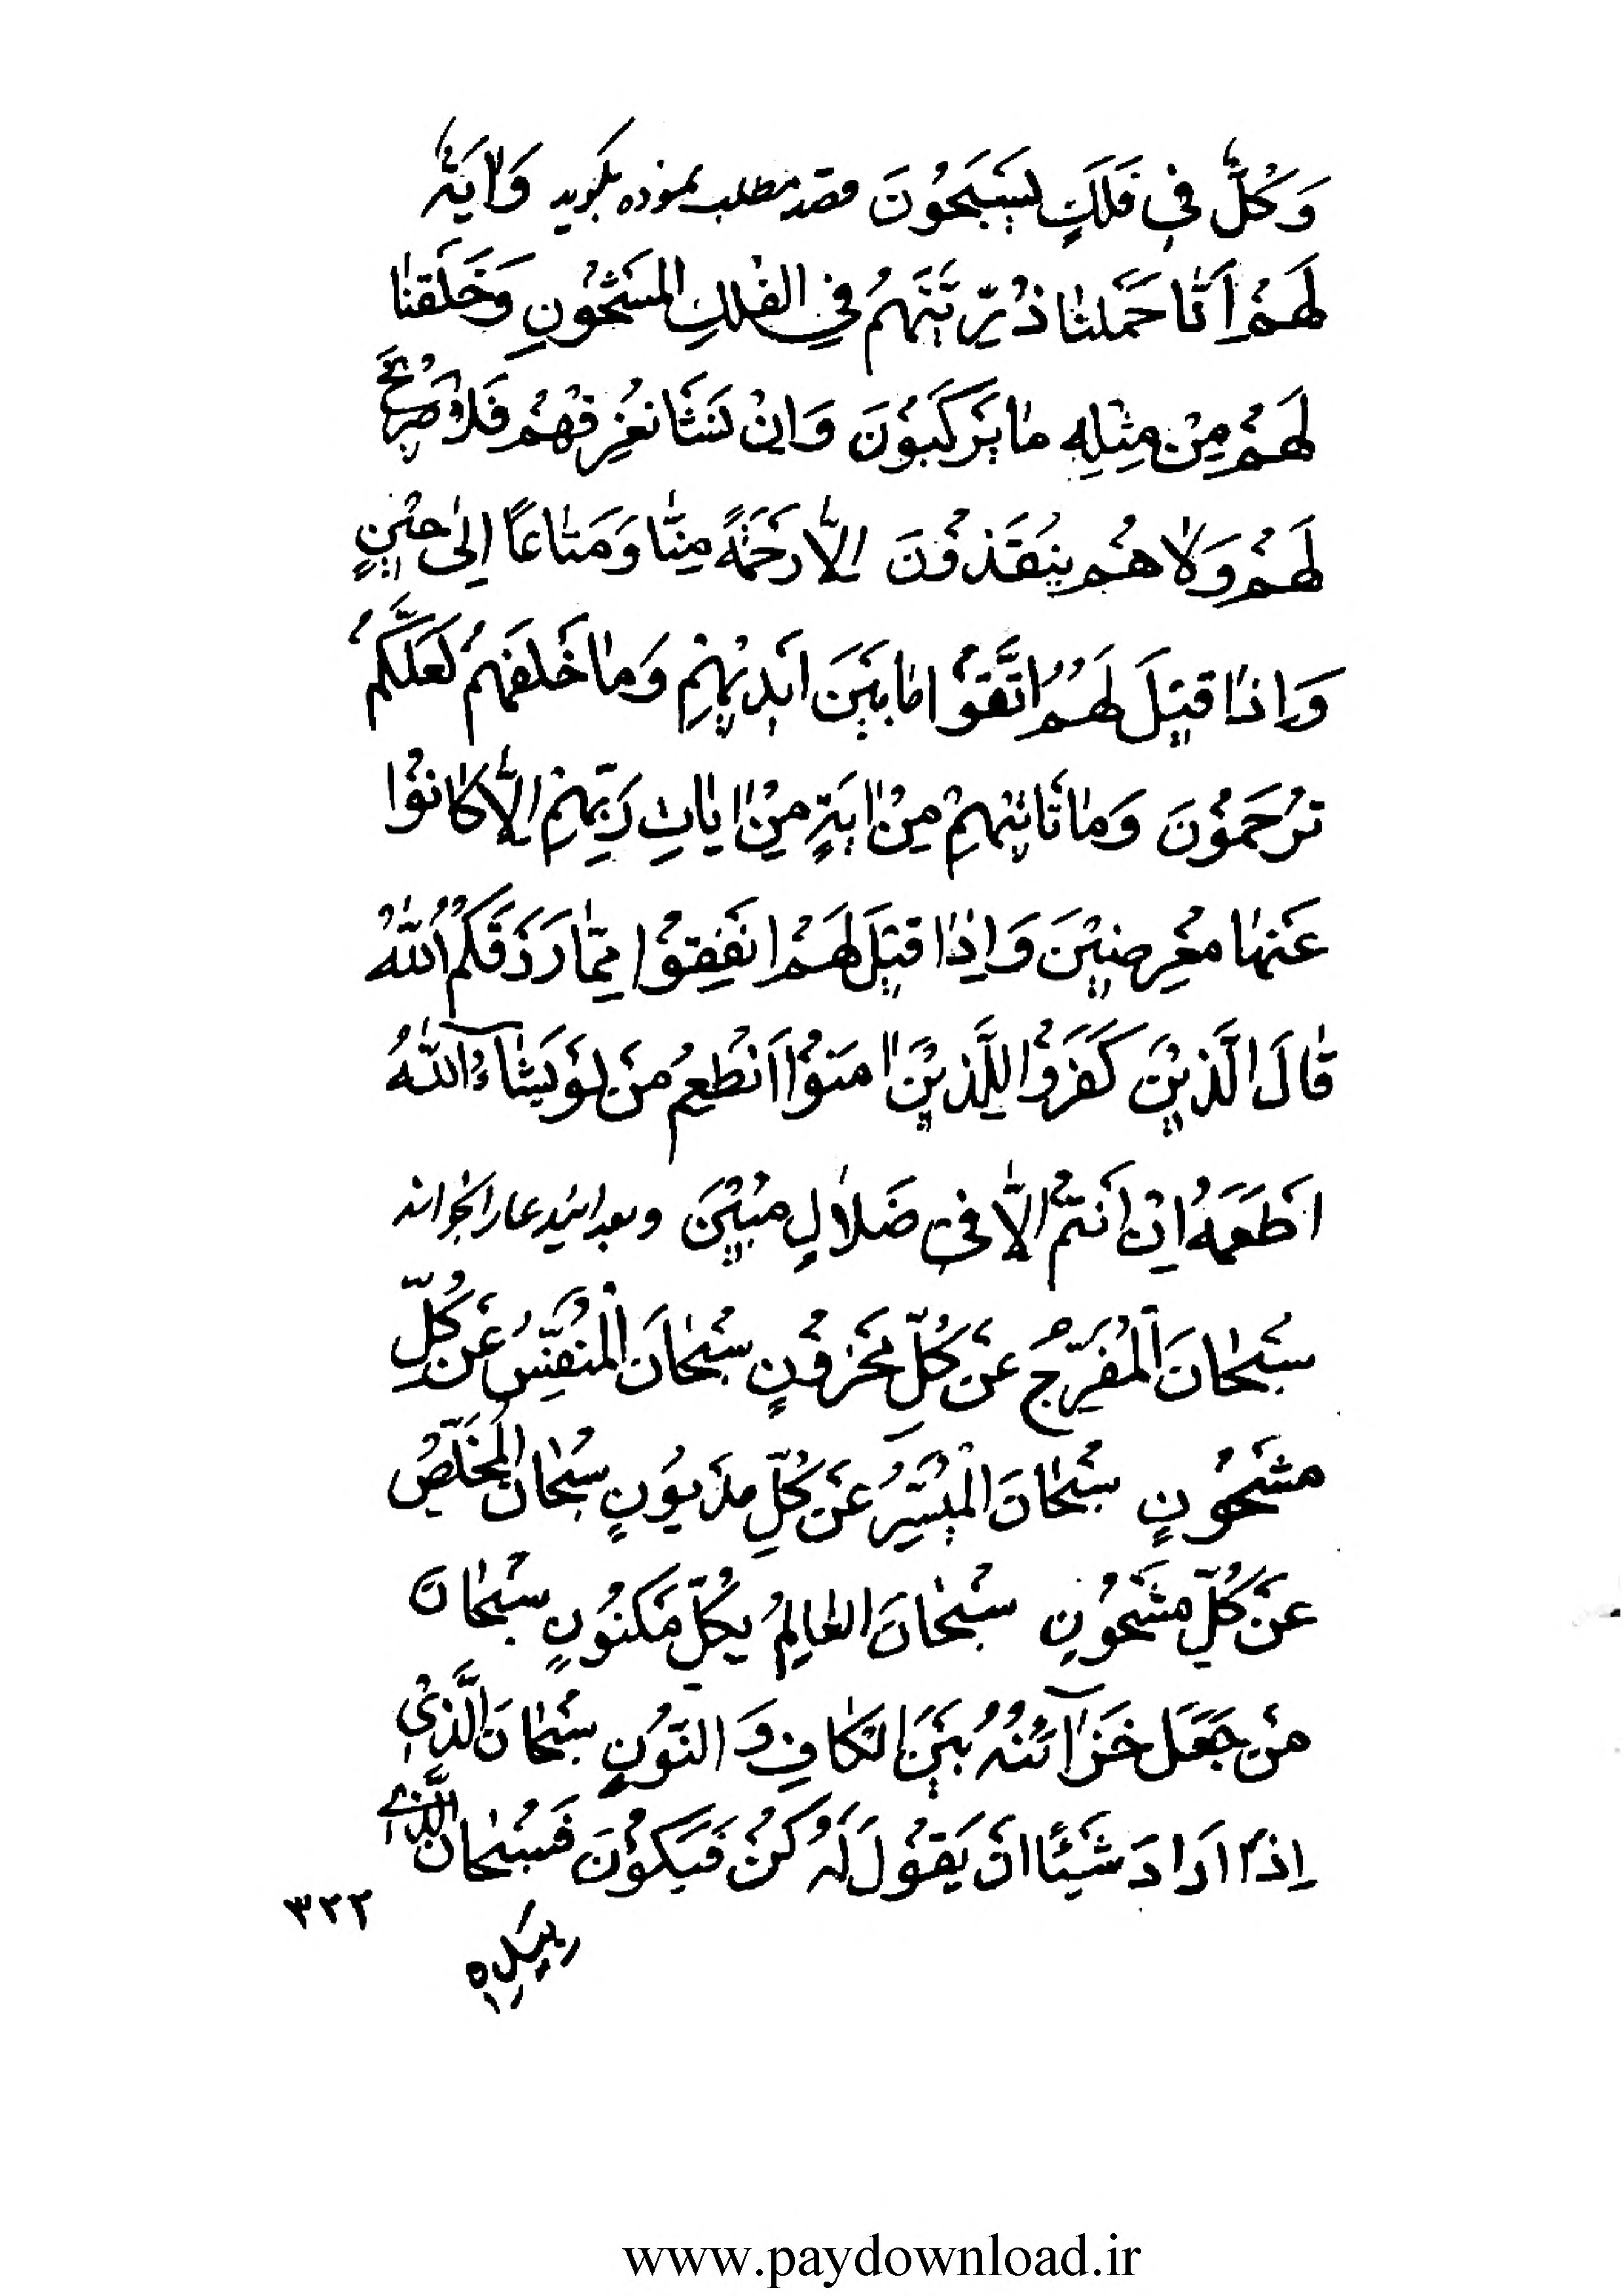 وَكُلٌّ في فَلَكٍ يَسْبَحُونَ قصد مطلب نموده بگوید وَاٰيَةٌ
لَهُمْ اَنّٰا حَمَلْنٰا ذُرِّيَّتَهُمْ فِي الْفُلْكِ الْمَشْحُونِ وَخَلَقْنٰا
لَهُمْ مِنْ مِثْلِهِ مٰا يَرْكَبُونَ وَاِنْ نَشَأْ نُغْرِقْهُمْ فَلٰا صَرِيخَ
لَهُمْ وَلٰا هُمْ يُنْقَذُونَ اِلّٰا رَحْمَةً مِنّٰا وَمَتٰاعًا اِلىٰ حِيْنٍ
وَاِذٰا قِيْلَ لَهُمُ اتَّقُوْا مٰا بَيْنَ اَيْدِيْهِمْ وَمٰا خَلْفَهُمْ لَعَلَّكُمْ
تُرْحَمُوْنَ وَمٰا تَأْتِيْهِمْ مِنْ اٰيَةٍ مِنْ اٰيٰاتِ رَبِّهِمْ اِلّٰا كٰانُوْا
عَنْهٰا مُعْرِضِيْنَ وَاِذٰا قِيْلَ لَهُمْ اَنْفِقُوْا مِمّٰا رَزَقَكُمُ اللّٰهُ
قٰالَ الَّذِيْنَ كَفَرُوْا لِلَّذِيْنَ اٰمَنُوْا اَنُطْعِمُ مَنْ لَوْ يَشٰاءُ اللّٰهُ
اَطْعَمَهُ اِنْ اَنْتُمْ اِلّٰا فى ضَلٰالٍ مُبِيْنَ و بعد ایندعا را بخواند
سُبْحٰانَ الْمُفَرِّجُ عَنْ كُلِّ مَحْزُوْنٍ سُبْحٰانَ الْمُنَفِّسُ عَنْ كُلِّ
مَشْحُوْنٍ سُبْحٰانَ الْمُيَسِّرُ عَنْ كُلِّ مَدْيُوْنٍ سُبْحٰانَ الْمُخَلِّصُ
عَنْ كُلِّ مَشْحُوْنٍ سُبْحٰانَ الْعٰالِمُ بِكُلِّ مَكْنُوْنٍ سُبْحٰانَ
مَنْ جَعَلَ خَزٰائِنُهُ بَيْنَ الْكٰافِ وَ النّوُنِ سُبْحٰانَ الَّذِىْ
اِذٰا اَرٰادَ شَيْئًا اَنْ يَقُوْلَ لَهُ كُنْ فَيَكُوْنَ فَسُبْحٰانَ الَّذى
٣٢٢
بیَدِه
www.paydownload.ir